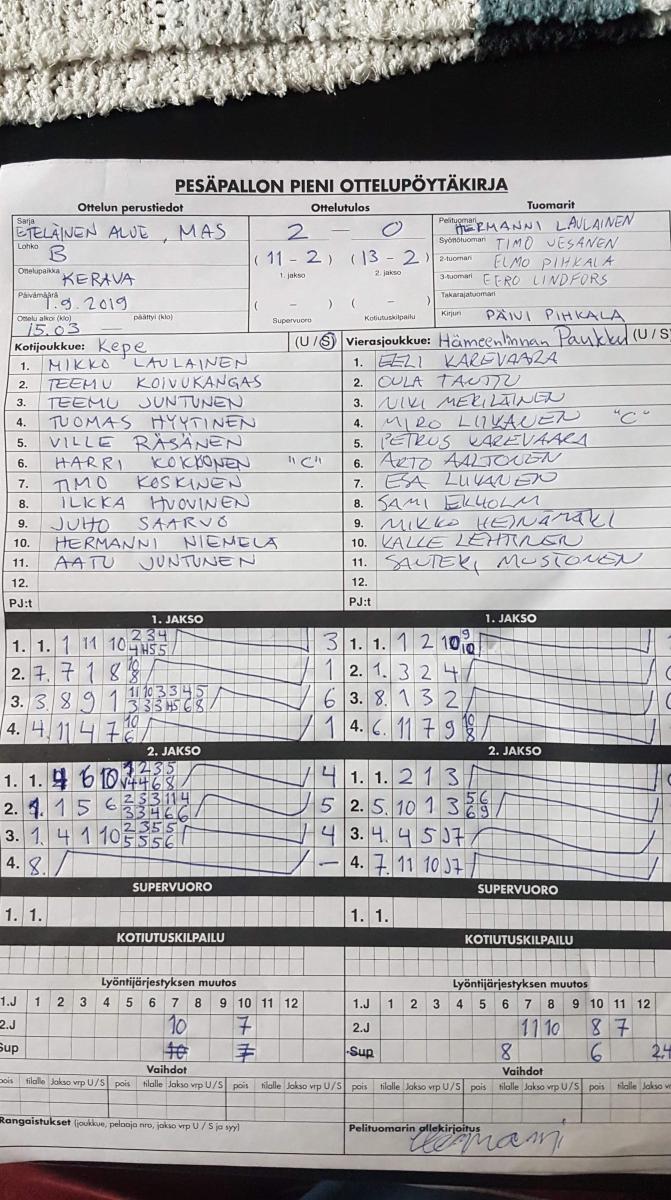 PESÄPALLON PIENI OTTELUPÖYTÄKIRJA
Ottelun perustiedot
Sarja
ETELÄINEN ALUE, MAS
Lohko
B
Ottelupaikka
KERAVA
Päivämäärä
1.9.2019
Ottelu alkoi (klo) päättyi (klo)
15.03 —
Ottelutulos
2 — 0
(11 - 2) (13 - 2)
1. jakso 2. jakso
( - ) ( - )
Supervuoro Kotiutuskilpailu
Tuomarit
Pelituomari HERMANNI LAULAINEN
Syöttötuomari TIMO VESÄNEN
2-tuomari ELMO PIHKALA
3-tuomari EERO LINDFORS
Takarajatuomari
Kirjuri PÄIVI PIHKALA
Kotijoukkue: Kepe (U / S)
1. MIKKO LAULAINEN
2. TEEMU KOIVUKANGAS
3. TEEMU JUNTUNEN
4. TUOMAS HYYTINEN
5. VILLE RÄSÄNEN
6. HARRI KOKKONEN "C"
7. TIMO KOSKINEN
8. ILKKA HUOVINEN
9. JUHO SAARVO
10. HERMANNI NIEMELÄ
11. AATU JUNTUNEN
12.
PJ:t
Vierasjoukkue: Hämeenlinnan Paukku (U / S
1. EELI KAREVAARA
2. OULA TAUTTU
3. NIKI MERILÄINEN
4. MIRO LIUKANEN "C"
5. PETRUS KAREVAARA
6. ARTO AALTONEN
7. ESA LIUKANEN
8. SAMI EKHOLM
9. MIKKO HEINÄMÄKI
10. KALLE LEHTINEN
11. SANTERI MUSTONEN
12.
PJ:t
1. JAKSO
1. 1. 1 11 10 2 3 4 3
4 H5 5
2. 7. 7 1 8 10 1
8
3. 3. 8 9 1 11 10 3 3 4 5 6
3 3 3 H5 6 8
4. 4. 11 4 7 10 1
6
2. JAKSO
1. 1. 6 10 2 3 5 4
4 4 6 8
2. 1. 1 5 6 2 3 3 11 4 5
3 3 4 6 6
3. 1. 4 1 10 2 3 5 5 4
5 5 5 6
4. 8. —
SUPERVUORO
1. 1.
KOTIUTUSKILPAILU
1. JAKSO
1. 1. 1 2 10 9
10
2. 1. 3 2 4
3. 8. 1 3 2
4. 6. 11 7 9 10
8
2. JAKSO
1. 1. 2 1 3
2. 5. 10 1 3 5 6
6 9
3. 4. 4 5 J7
4. 7. 11 10 J7
SUPERVUORO
1. 1.
KOTIUTUSKILPAILU
Lyöntijärjestyksen muutos
1.J 1 2 3 4 5 6 7 8 9 10 11 12
2.J 10 7
Sup 10 7
Vaihdot
pois tilalle Jakso vrp U / S pois tilalle Jakso vrp U / S pois tilalle Jakso vrp U / S
Rangaistukset (joukkue, pelaaja nro, jakso vrp U / S ja syy)
Lyöntijärjestyksen muutos
1.J 1 2 3 4 5 6 7 8 9 10 11 12
2.J 11 10 8 7
Sup 8 6 2.4
Vaihdot
pois tilalle Jakso vrp U / S pois tilalle Jakso vrp U / S pois tilalle Jakso vr
Pelituomarin allekirjoitus